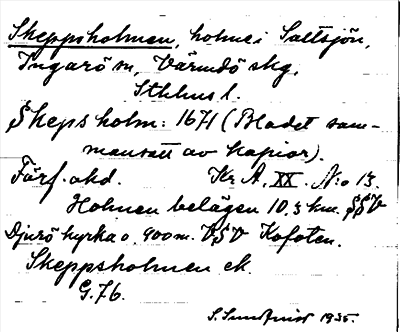 Skeppsholmen, holme i Saltsjön,
Ingarö sn, Värmdö skg,
Sthlms l.
Skepsholm: 1671 (Bladet sam-
mansatt av kopior).
Förf. okd. Kr A, XX. N:o 13.
Holmen belägen 10,3 km. SSV
Djurö kyrka o. 900 m. VSV Kofoten.
Skeppsholmen ek.
G.76.
S. Sundqvist 1935.